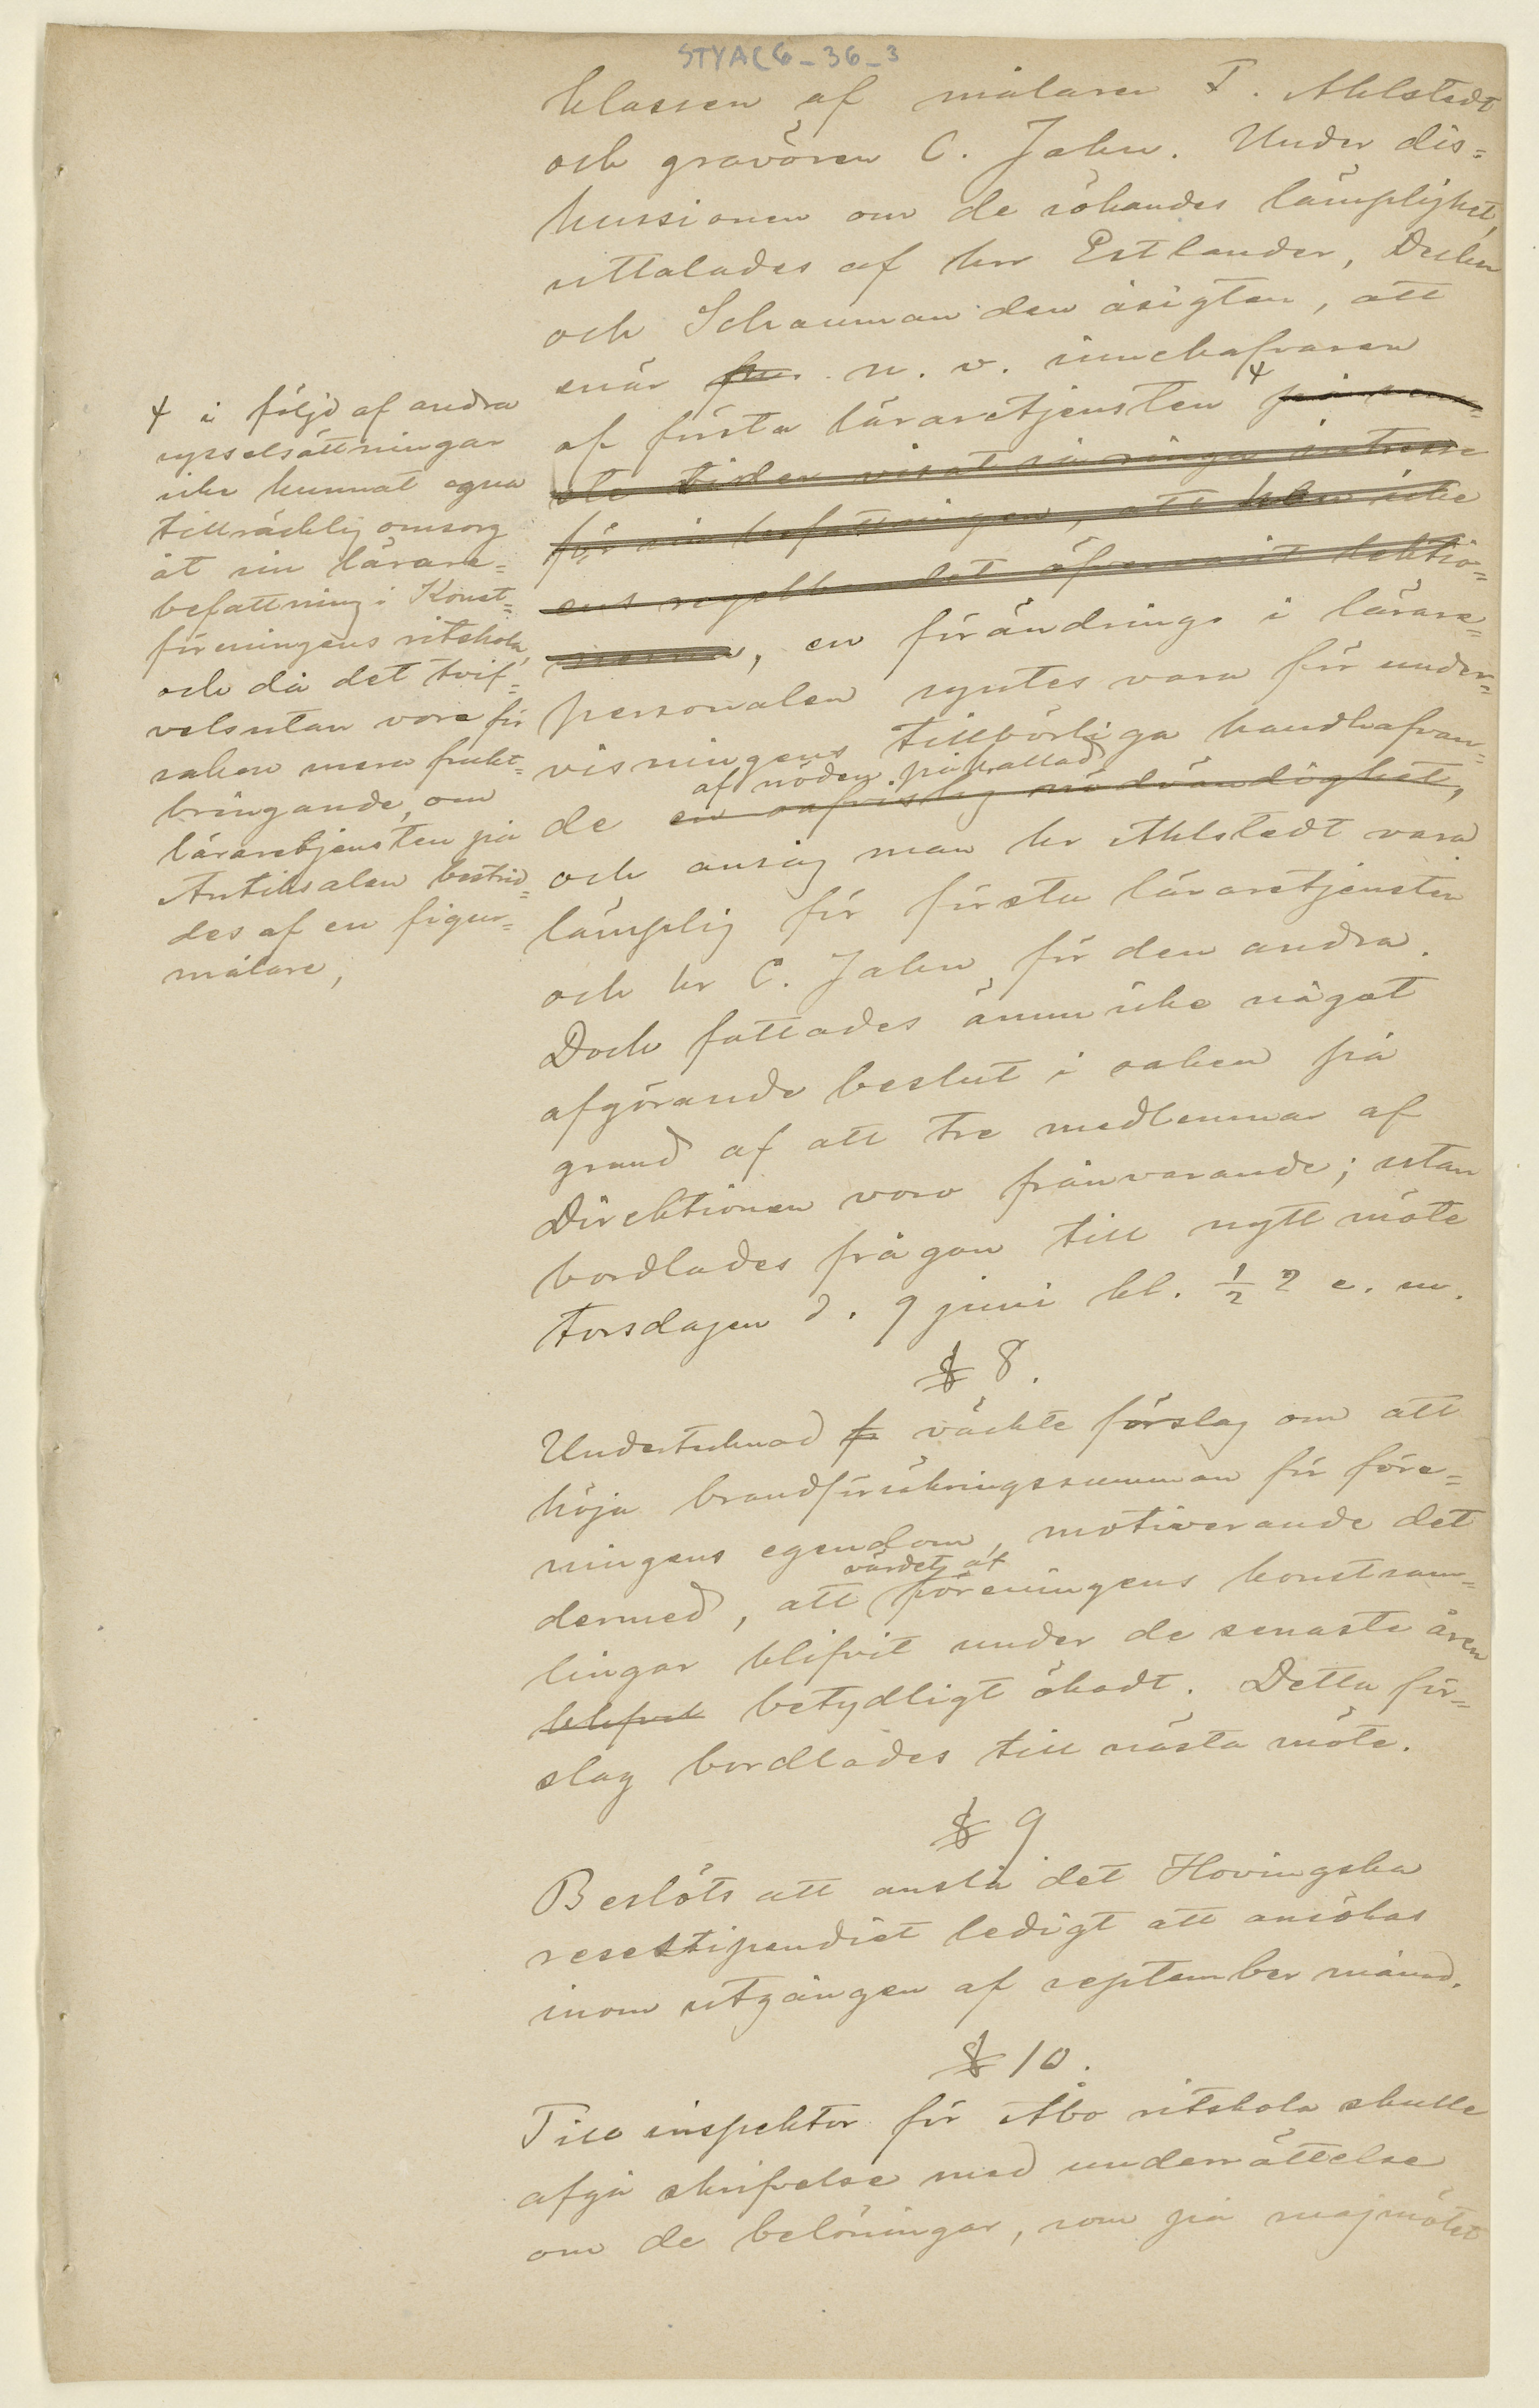 STYA C6-36-3
klassen af målaren F. Ahlstedt
och gravören C. Jahn. Under dis=
kussionen om de sökandes lämplighet,
uttalades af hrr Estlander, Decker
och Schauman den åsigten, att
enär n. v. innehafvaren
af första läraretjensten ⸸ på sena=
ste tiden visat så ringa intresse
för sin befattningen, att han icke
ens regelbundet öfvervarit lektio=
nerna, en förändring i lärare=
personalen syntes vara för under=
visningens tillbörliga handhafvan=
af nöden påkallad
de en oafvislig nödvändighet,
och ansåg man hr Ahlstedt vara
lämplig för första läraretjensten
och hr C. Jahn för den andra.
Doch fattades ännu icke något
afgörande beslut i saken på
grund af att tre medlemmar af
Direktionen voro frånvarande; utan
bordlades frågan till nytt möte
torsdagen d. 9 juni kl. ½ 2 e. m.
⸸ i följd af andra
sysselsättningar
icke kunnat egna
tillräcklig omsorg
åt sin lärare=
befattning i Konst=
föreningens ritskola,
och då det tvif=
velsutan vore för
saken mera frukt=
bringande, om
läraretjensten på
Antiksalen bestrid=
des af en figur=
målare,
§ 8.
Undertecknad väckte förslag om att
höja brandförsäkringssumman för före=
ningens egendom, motiverande det
värdet af
dermed, att föreningens konstsam=
lingar blifvit under de senaste åren
blifvit betydligt ökadt. Detta för=
slag bordlades till nästa möte.
§ 9
Beslöts att anslå det Hovingska
resestipendiet ledigt att ansökas
inom utgången af september månad.
§ 10.
Till inspektor för Åbo ritskola skulle
afgå skrifvelse med underrättelse
om de belöningar, som på majmötet